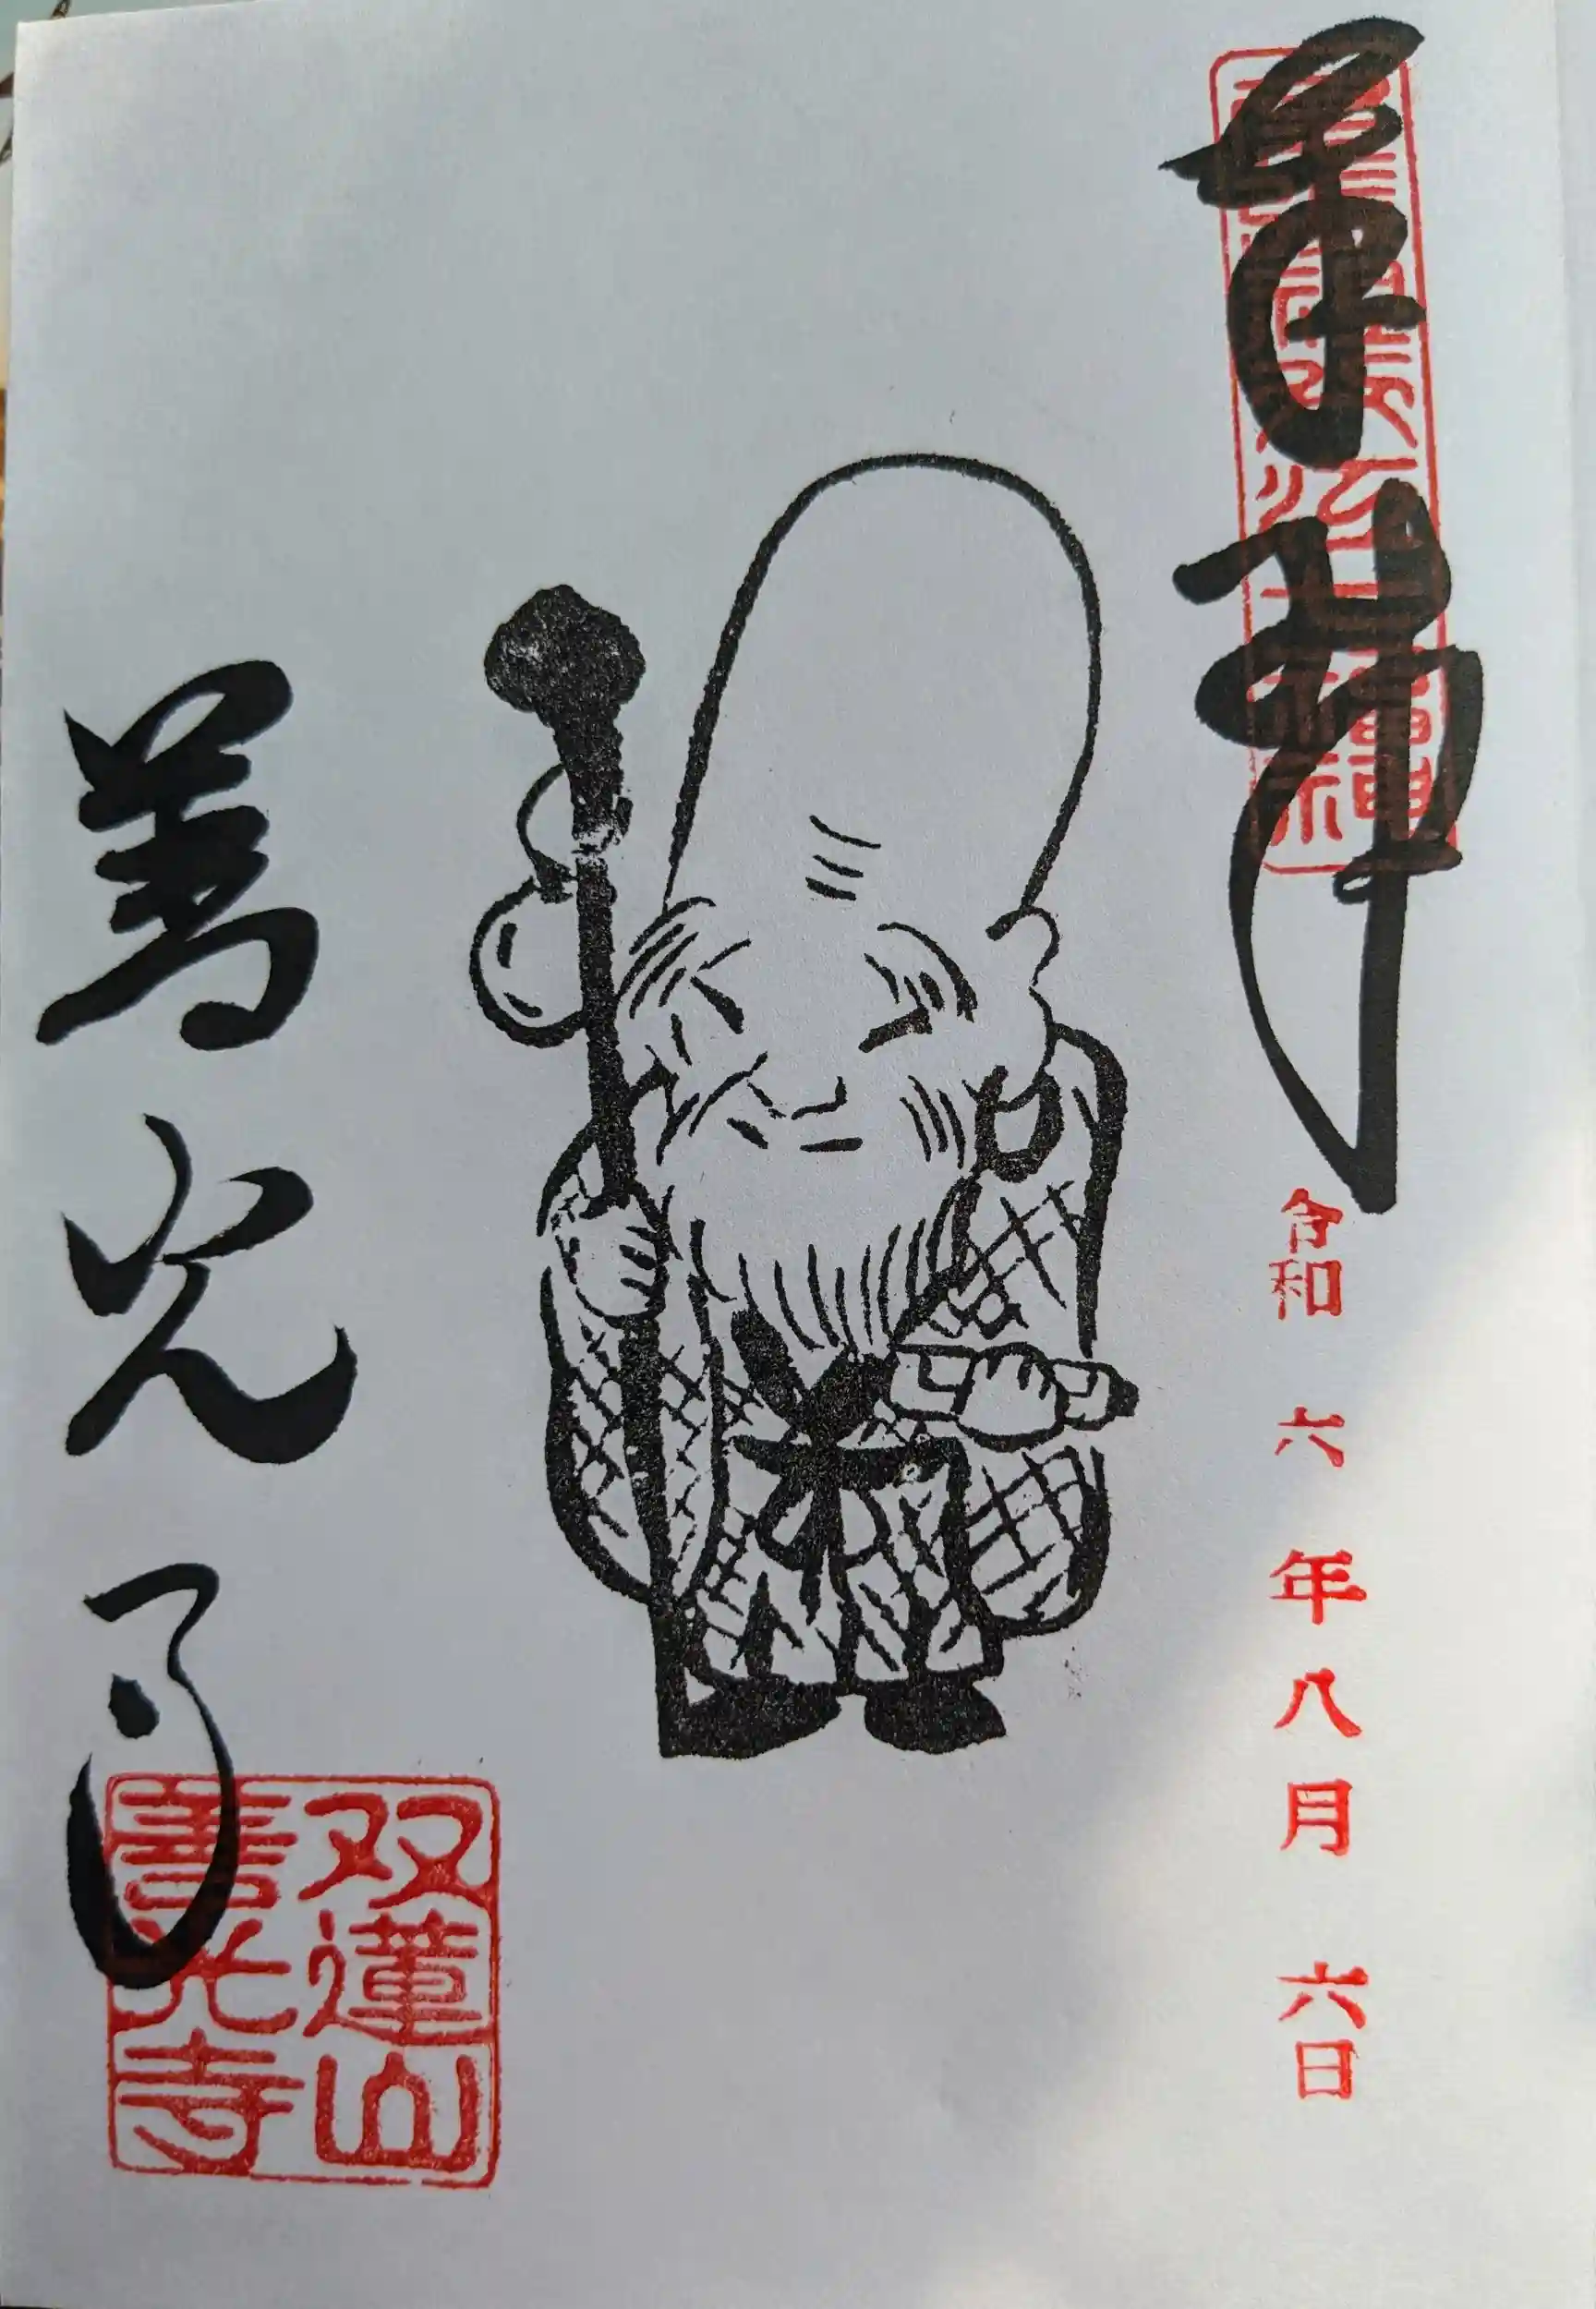 奉拝
令和 六 年 八 月 六日
双蓮山
善光寺
善光寺